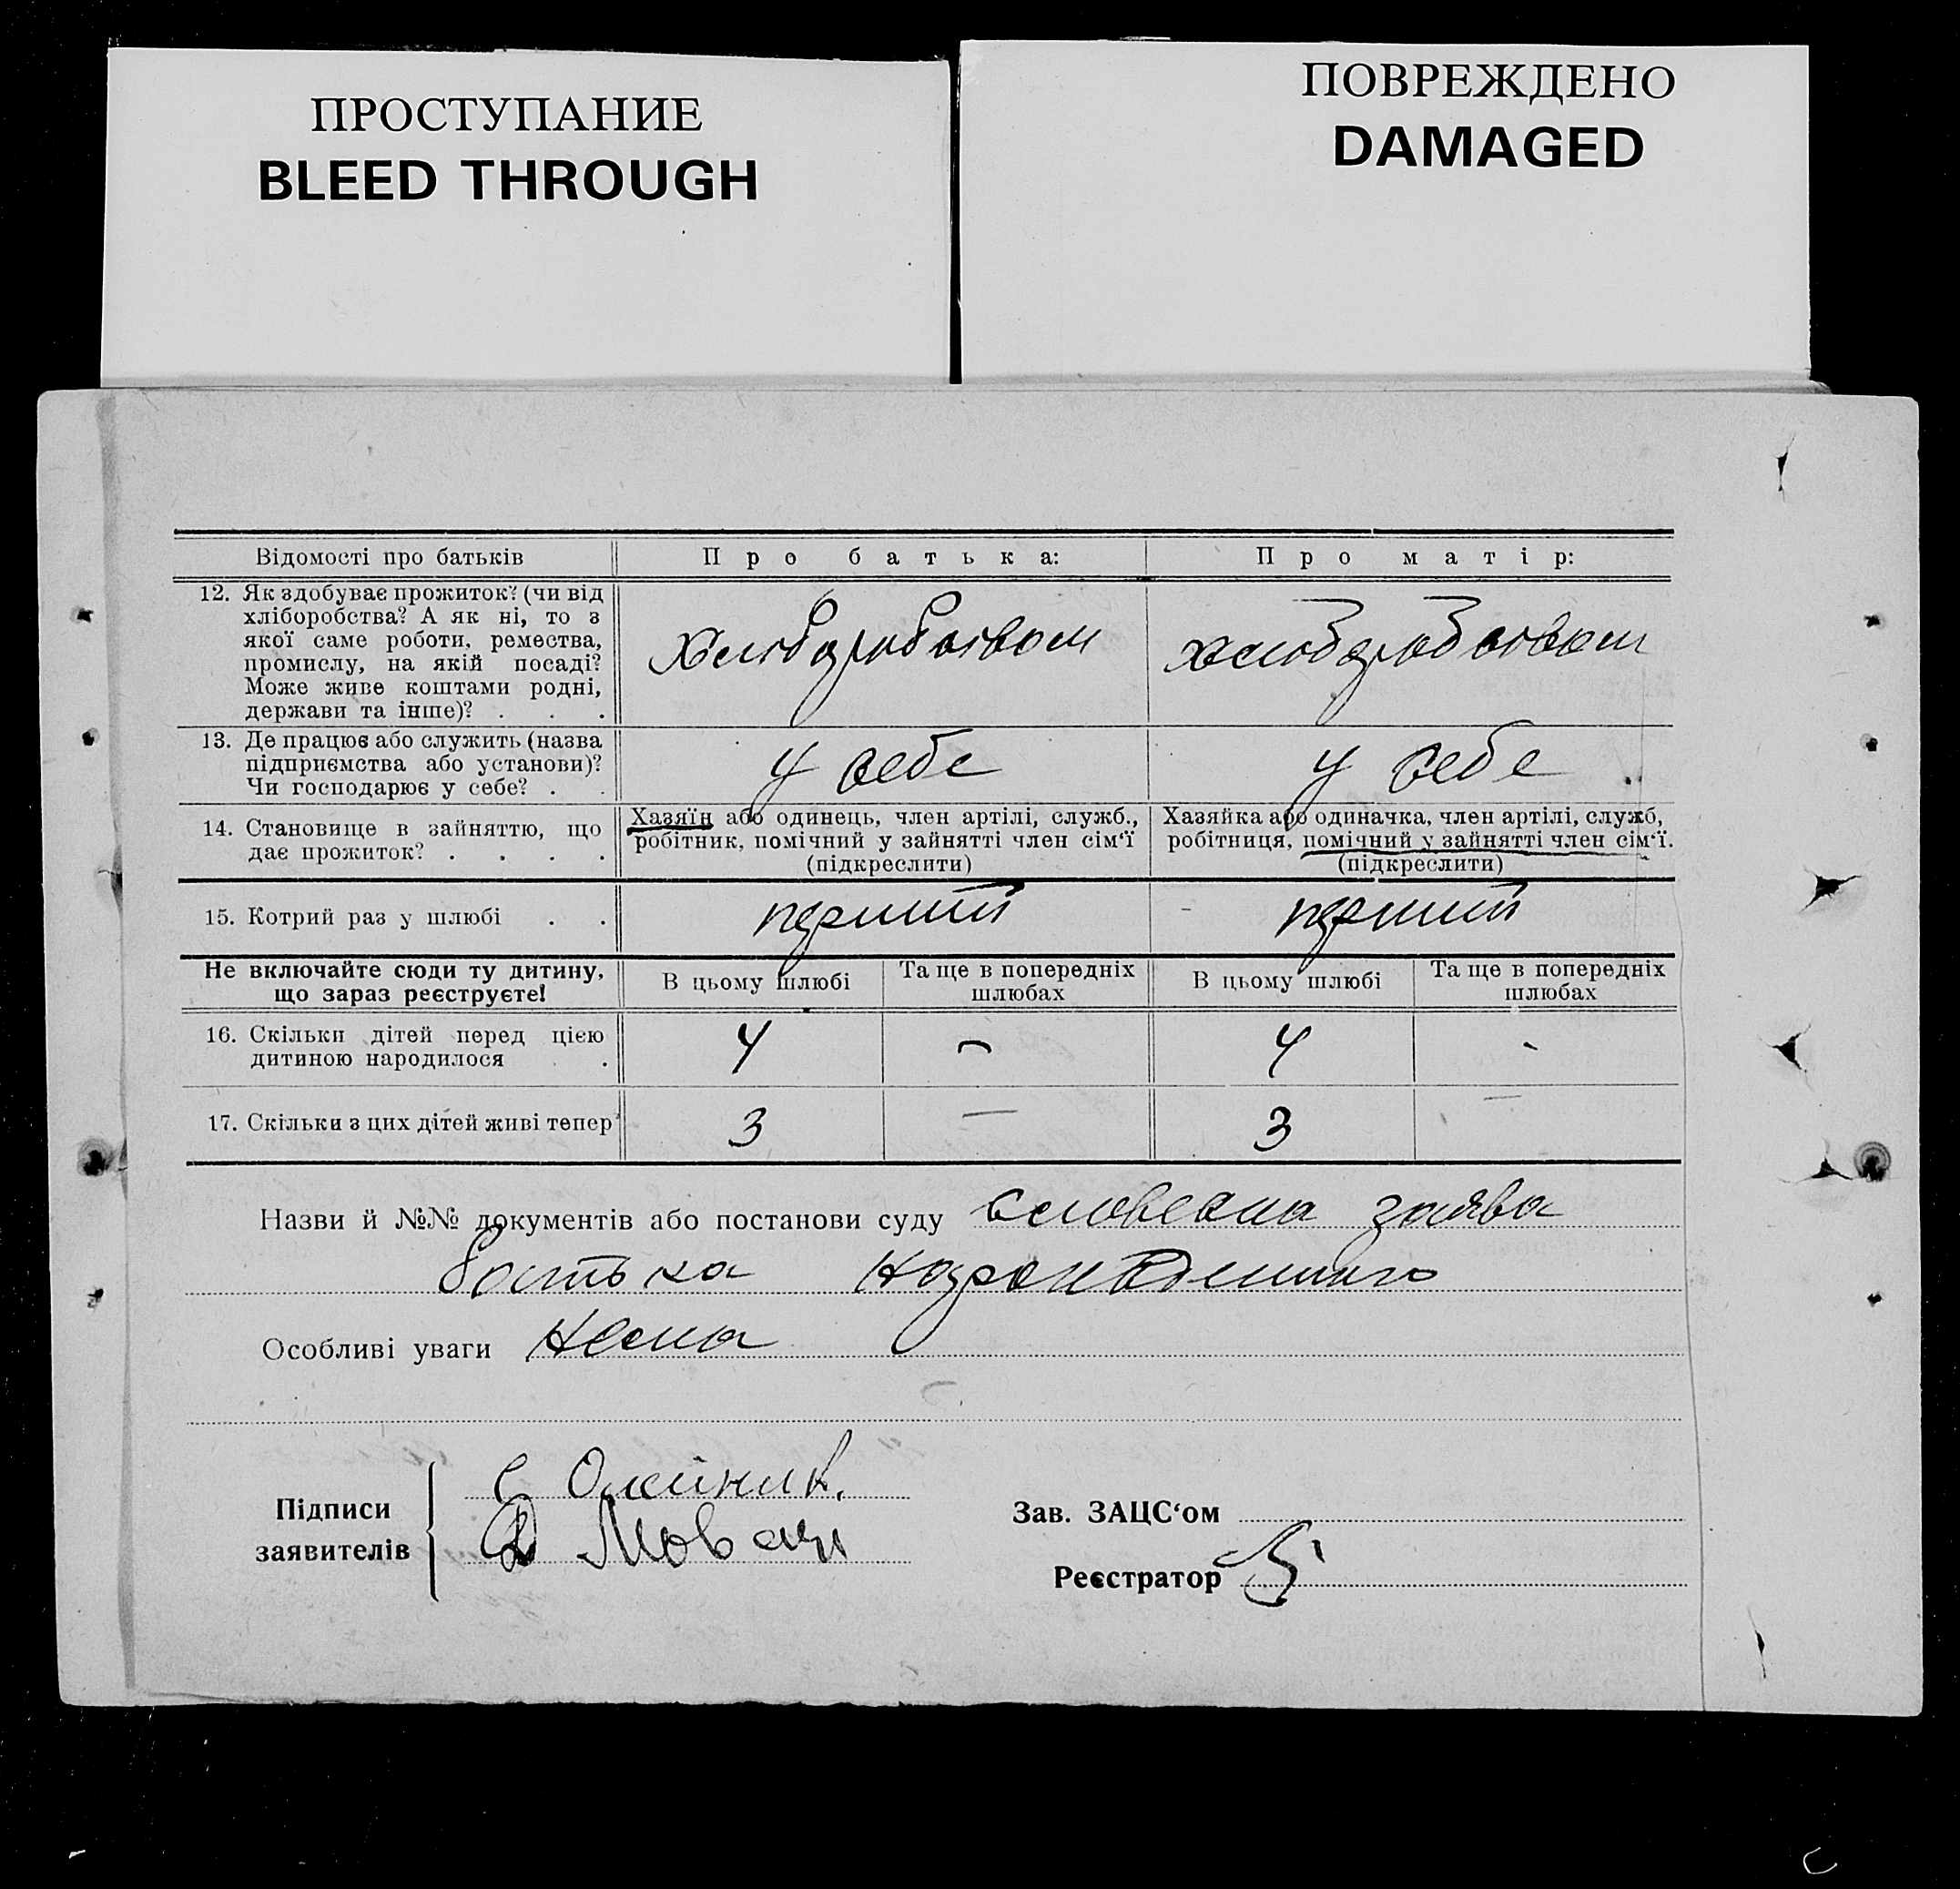 ПРОСТУПАНИЕ
BLEED THROUGH
ПОВРЕЖДЕНО
DAMAGED
Відомості про батьків
Про батька:
Про матір:
12. Як здобуває прожиток? (чи від
хліборобства? А як ні, то з
якої саме роботи, ремества,
промислу, на якій посаді?
Може живе коштами родні,
держави та інше)? . . .
Хліборобством
хліборобством
13. Де працює або служить (назва
підприємства або установи)?
Чи господарює у себе? . .
у себе
у себе
14. Становище в зайняттю, що
дає прожиток? . . . .
Хазяїн або одинець, член артілі, служб.,
робітник, помічний у зайнятті член сім'ї
(підкреслити)
Хазяйка або одиначка, член артілі, служб,
робітниця, помічний у зайнятті член сім'ї.
(підкреслити)
15. Котрий раз у шлюбі . .
перший
перший
Не включайте сюди ту дитину,
що зараз реєструєте!
В цьому шлюбі
Та ще в попередніх
шлюбах
В цьому шлюбі
Та ще в попередніх
шлюбах
16. Скільки дітей перед цією
дитиною народилося .
4
-
4
-
17. Скільки з цих дітей живі тепер
3
—
3
—
Назви й №№ документів або постанови суду словесна заява
батька
Особливі уваги Нема
Підписи
заявителів
Є Олійник.
Зав. ЗАЦС'ом
Реєстратор